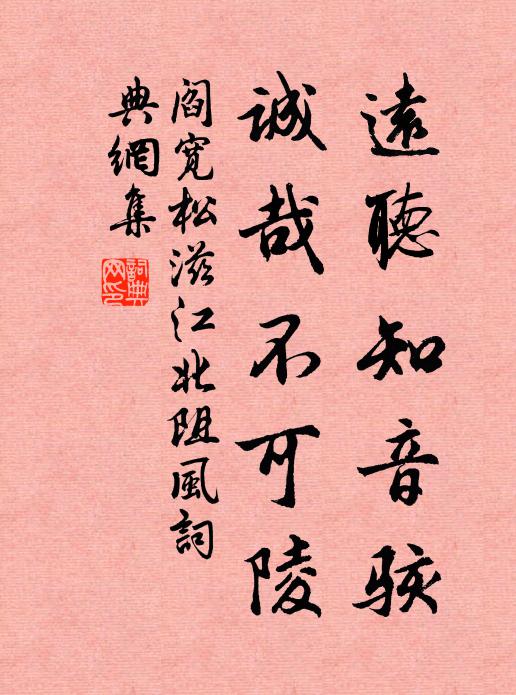 遠聽知音駭
誠哉不可陵
閻寬松滋江北阻風詞
典網集
詞典網印